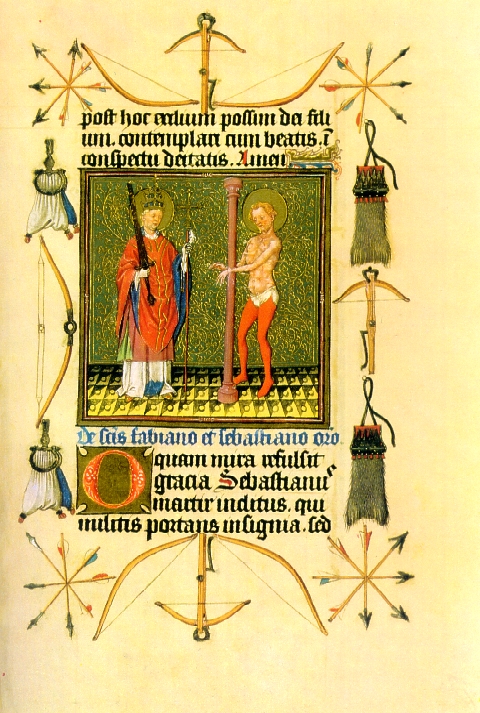 post hoc exilium possim dei fili
um. contemplari cum beatis. i
conspectu deitatis. Amen
De scis fabiano et sebastiano oro
O quam mira refulsit
gracia Sebastianus
martir inclitus. qui
militis portans insignia. sed